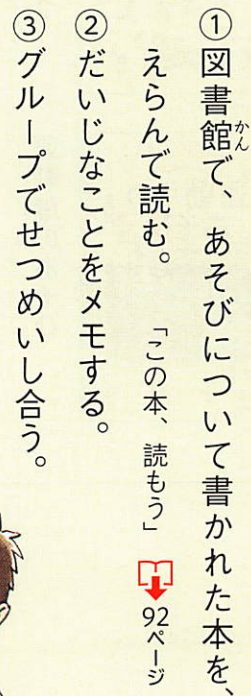 ①図書館で、あそびについて書かれた本を、
えらんで読む。「この本、読もう」92ページ
②だいじなことをメモする。
③グループでせつめいし合う。